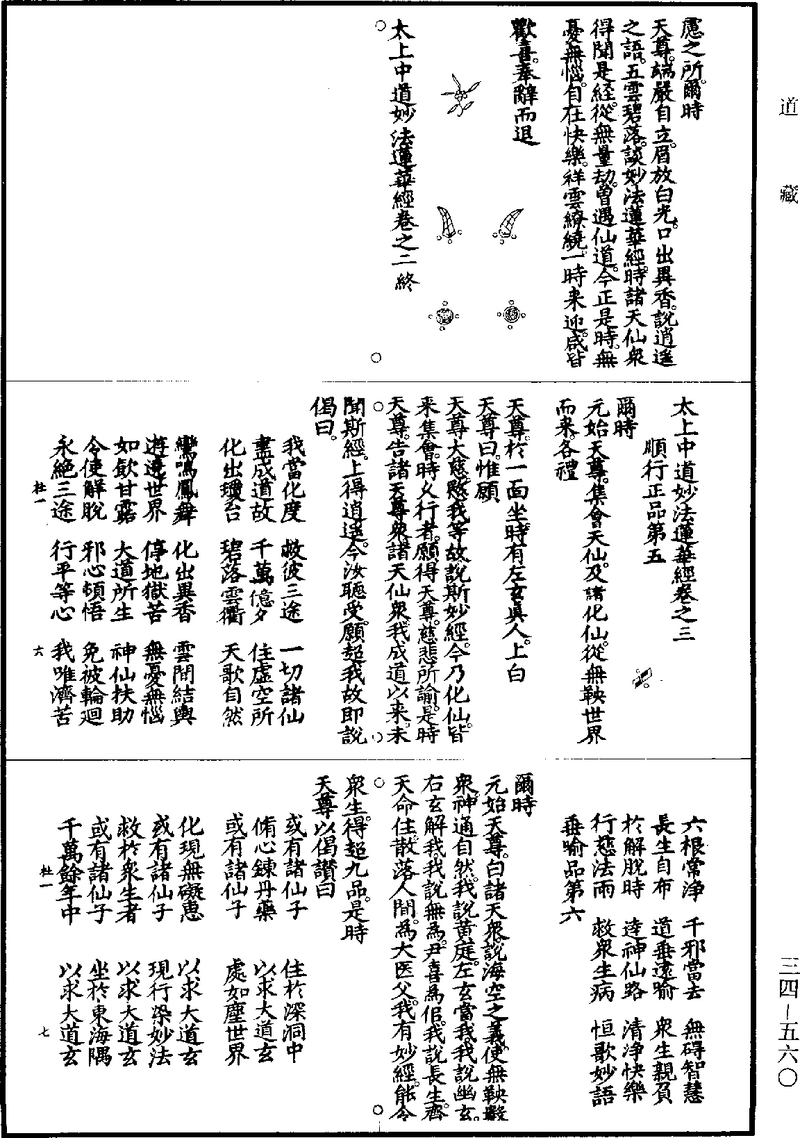 道藏
慮之所爾時
天尊端嚴自立眉放白光口出異香說逍遥
之語五雲碧落談妙法蓮華經時諸天仙衆
得聞是經從無量劫曽遇仙道今正是時無
憂無惱自在快樂祥雲繚繞一時来迎咸皆
歡喜奉辭而退
太上中道妙法蓮華經卷之二終
太上中道妙法蓮華經卷之三
順行正品第五
爾時
元始天尊集會天仙及諸化仙從無鞅世界
而来各禮
天尊於一面坐時有左玄真人上白
天尊曰惟願
天尊大慈愍我等故說斯妙經今乃化仙皆
来集會時乆行者願得天尊慈悲所諭是時
天尊告諸天尊衆諸天仙衆我成道以来未
聞斯經上得逍遥今汝聽受願超我故即說
偈曰
我當化度 救彼三途 一切諸仙
盡成道故 千萬億夕 住虛空所
化出瓊臺 碧落雲衢 天歌自然
鸞鳴鳳舞 化出異香 雲閒結輿
遊遶世界 停地獄苦 無憂無惱
如飲甘露 大道所生 神仙扶助
令使解脫 邪心頓悟 免被輪迴
永絶三途 行平等心 我唯濟苦
杜一 六
六根常淨 千邪當去 無碍智慧
長生自布 道垂遠喻 衆生親負
於解脫時 逵神仙路 清淨快樂
行慈法雨 救衆生病 恒歌妙語
垂喻品第六
爾時
元始天尊白諸天衆說海空之義使無鞅數
衆神通自然我說黄庭左玄當我我說幽玄
右玄解我我說無為尹喜為佀我說長生齊
天命住散落人間為大医父我有妙經能令
衆生得超九品是時
天尊以偈讃曰
或有諸仙子 住於深洞中
脩心鍊丹藥 以求大道玄
或有諸仙子 處如塵世界
化現無礙恵 以求大道玄
或有諸仙子 現行深妙法
救於衆生者 以求大道玄
或有諸仙子 坐於東海隅
千萬餘年中 以求大道玄
杜一 七
三四—五六〇